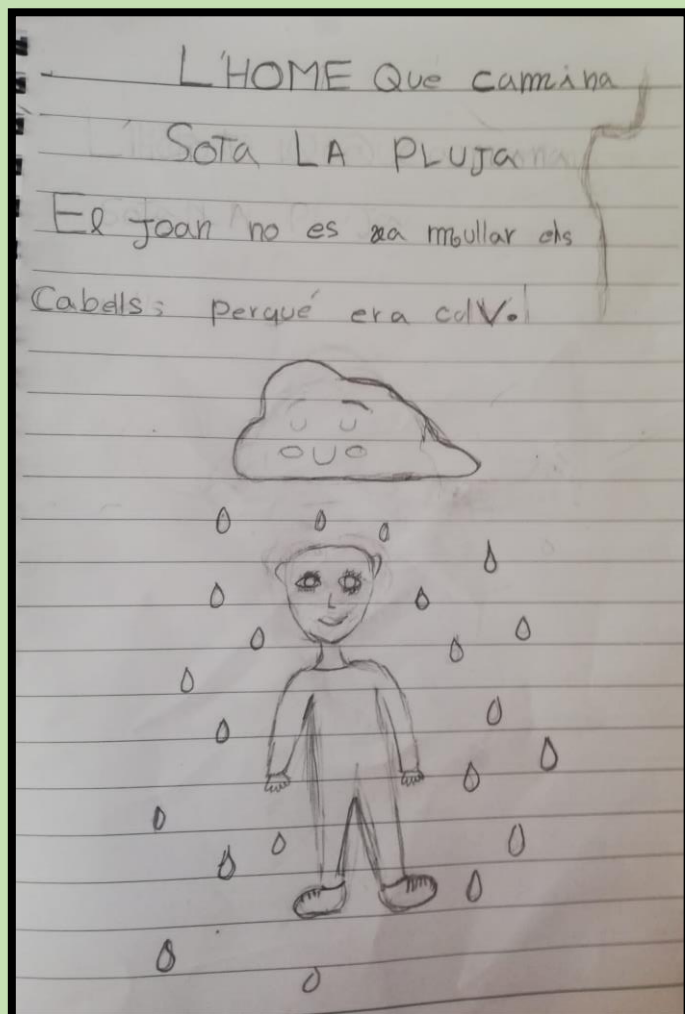 L'HOME Que camina
Sota LA PLUJA
El Joan no es va mullar els
Cabells: perqué era calv.